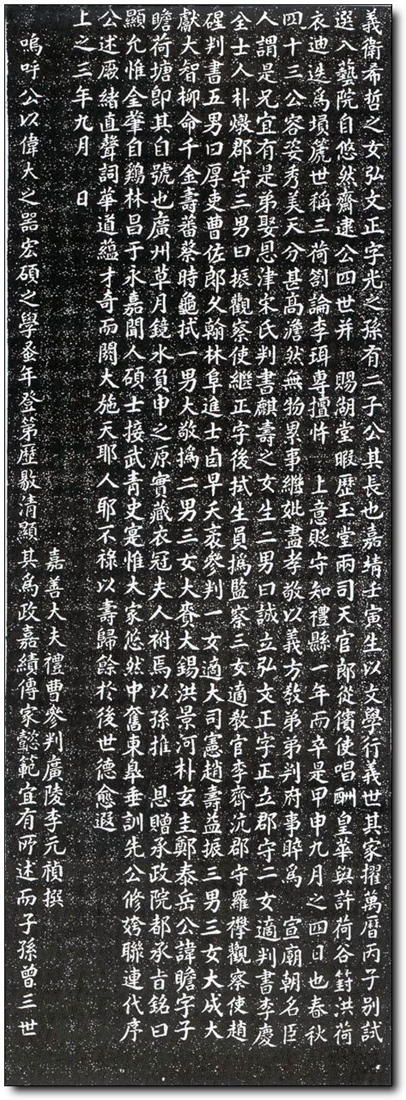 義衛希哲之女弘文正字光之孫有二子公其長也嘉靖壬寅生以文學行義世其家擢萬曆丙子別試
選入藝院自悠然齋逮公四世并 賜湖堂暇歷玉堂兩司天官郎從儐使唱酬皇華與許荷谷篈洪荷
衣迪迭爲塤篪世稱三荷劄論李珥專擅忤 上意貶守知禮縣一年而卒是甲申九月之四日也春秋
四十三公容姿秀美天分甚高澹然無物累事繼妣盡孝敬以義方敎弟弟判府事晬爲 宣廟朝名臣
人謂是兄宜有是弟娶恩津宋氏判書麒壽之女生二男曰誠立弘文正字正立郡守二女適判書李慶
全士人朴燉郡守三男曰振觀察使繼正字後拭生員撝監察三女適敎官李齊沆郡守羅㩵觀察使趙
䃏判書五男曰厚吏曹佐郎久翰林阜進士卣早夭裒參判一女適大司憲趙壽益振三男三女大成大
獻大智柳命千金壽蕃蔡時龜拭一男大敬撝二男三女大賚大錫洪景河朴玄圭鄭泰岳公諱瞻字子
瞻荷塘卽其自號也廣州草月鏡水負申之原實藏衣冠夫人祔焉以孫推 恩贈承政院都承旨銘曰
顯允惟金肇自鷄林昌于永嘉聞人碩士接武靑史寔惟大家悠然中奮東皐垂訓先公修姱聯連代序
公述厥緖直聲詞華道蘊才奇而閼大施天耶人耶不祿以壽歸餘於後世德愈遐
上之三年九月 日
嘉善大夫禮曹參判廣陵李元禎撰
嗚呼公以偉大之器宏碩之學蚤年登第歷敭淸顯其爲政嘉績傳家懿範宜有所述而子孫曾三世